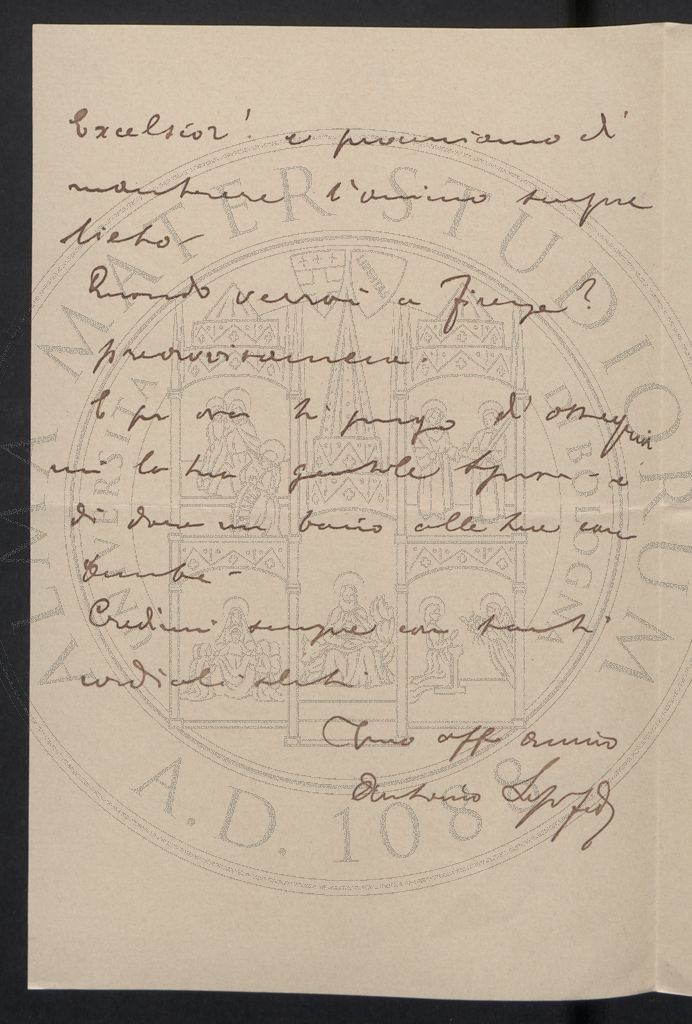 Excelsior! e procuriamo di
mantenere l'animo sempre
lieto –
Quando verrai a Firenze?
preavvisamene.
E per ora ti prego d'ossequiar
mi la tua gentile Sposa – e
di dare un bacio alle tue care
bimbe –
Credimi sempre con tanti
cordiali saluti
Tuo aff amico
Antonio
ALMA MATER STUDIORUM
UNIVERSITÀ DI BOLOGNA
LIBERTAS
A.D. 1088